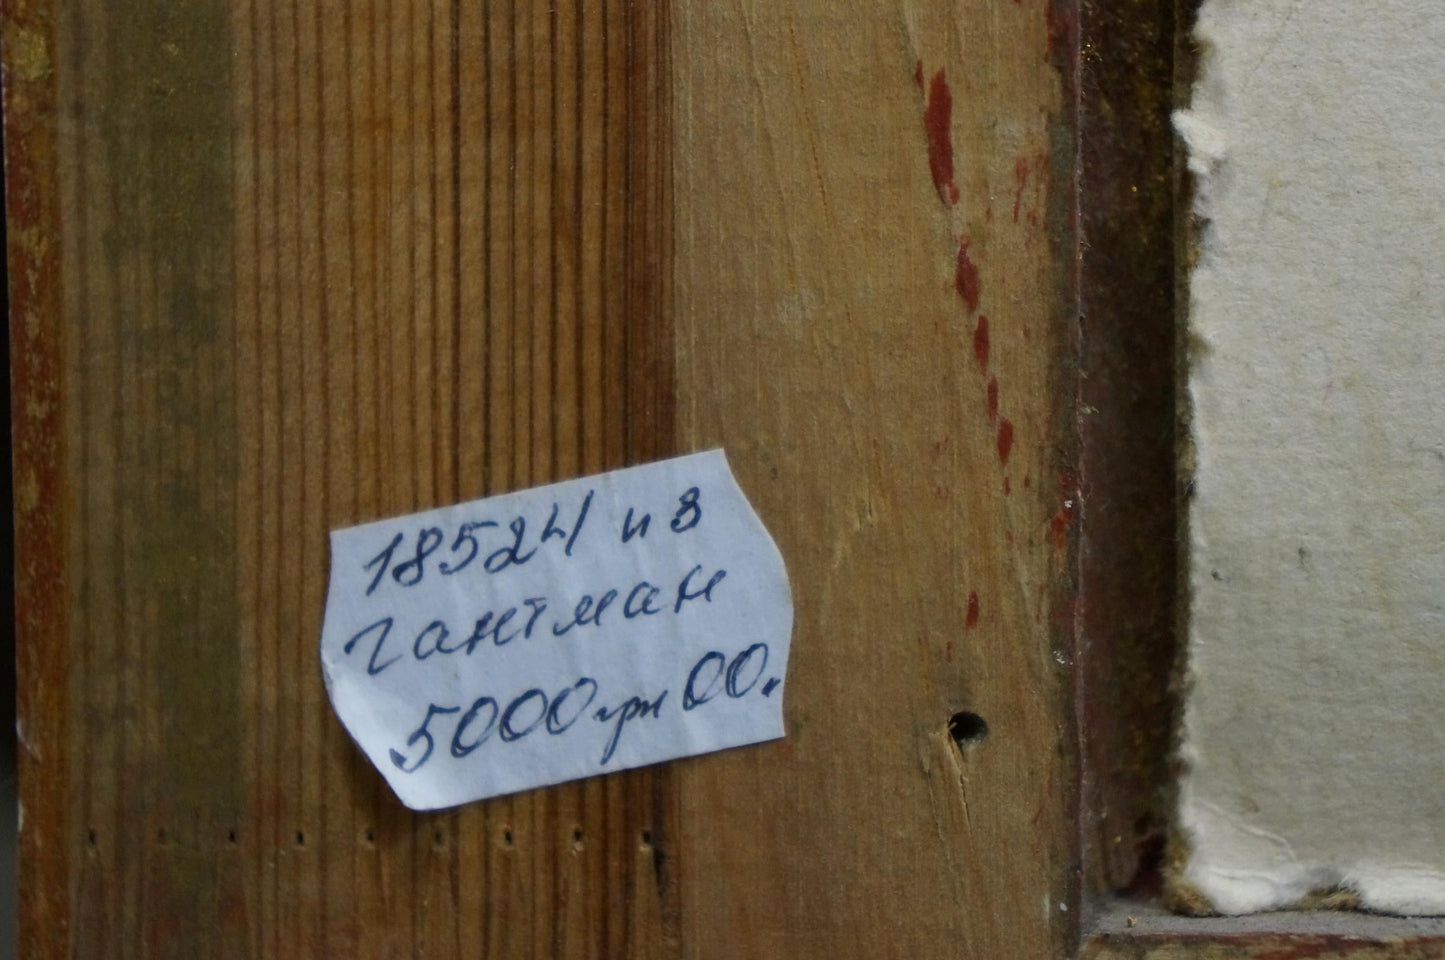 18524 из
Гантман
5000 грн 00.